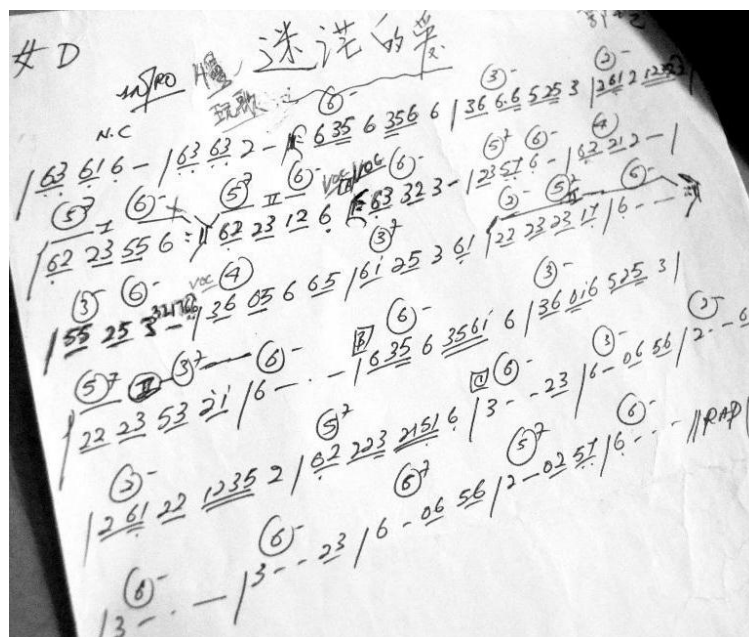 女 D 迷茫的爱
INTRO
玩歌
N.C ⑥- ③- ②-
| 63 616 - | 63 63 2 - |: 635 6 356 6 | 36 6.6 525 3 | 261 2 1235 |
⑤⁷ I ⑥- ⑤⁷ II ⑥- VOC ⑥- ⑤⁷ ⑥- ④
| 62 23 55 6 :|| 62 23 12 6 |: 63 323 - | 23 57 6 - | 62 21 2 - |
③- ⑥- VOC ④ ③⁷ ②- ⑤⁷ II ⑥-
| 55 25 3 - | 36 05 6 65 | 61 25 3 61 | 22 23 23 17 | 6 - - -
⑤⁷ II ③⁷ ⑥- B ⑥- ③-
| 22 23 53 21 | 6 - - - | 635 6 3561 6 | 36 016 525 3 |
③- ⑤⁷ C ⑥- ③- ②-
| 261 22 1235 2 | 62 223 2151 6 | 3 - - 23 | 6 - 06 56 | 2 - - 6
⑥- ⑥- ⑤⁷ ⑤⁷ ⑥-
| 3 - - - | 3 - - 23 | 6 - 06 56 | 2 - 02 57 | 6 - - - || RAP |